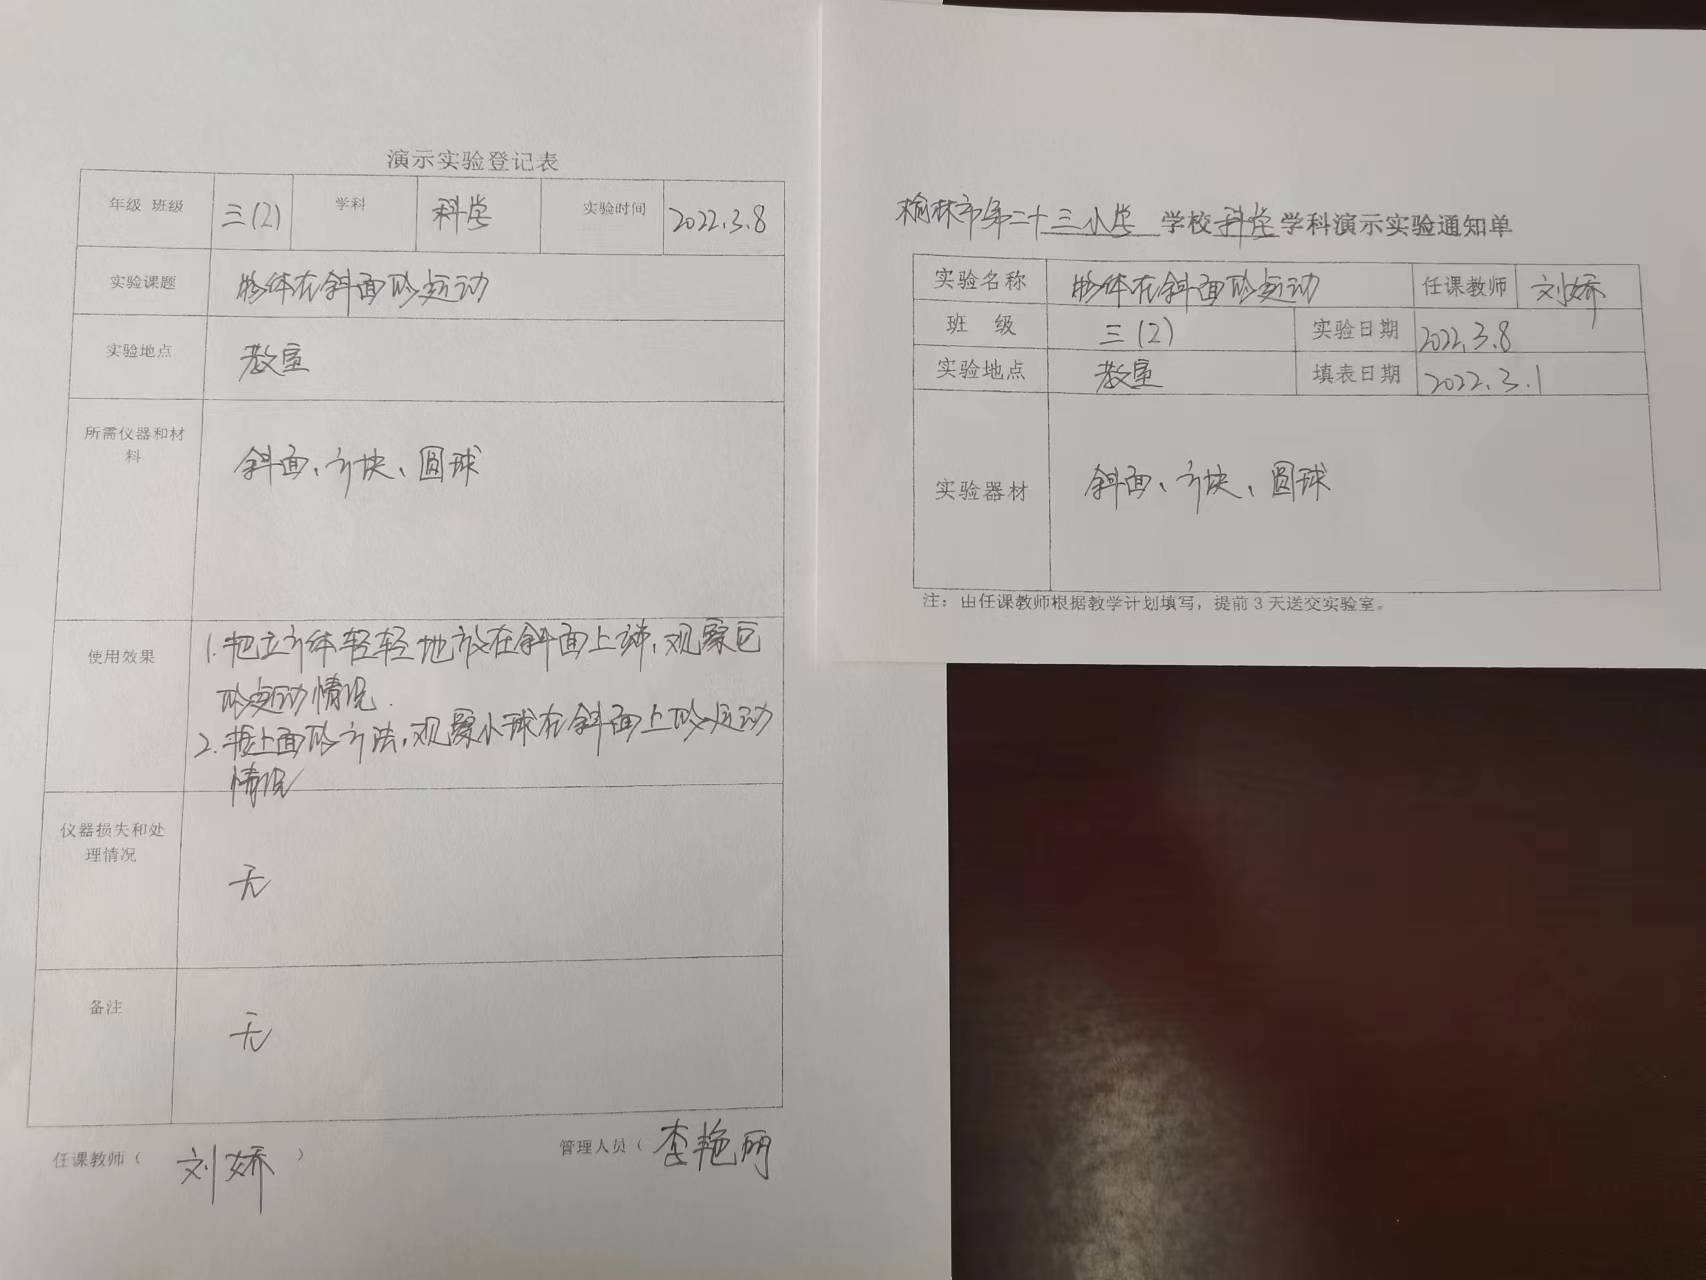 演示实验登记表
年级 班级 三(2) 学科 科学 实验时间 2022.3.8
实验课题 物体在斜面的运动
实验地点 教室
所需仪器和材
料
斜面、方块、圆球
使用效果
1.把立方体轻轻地放在斜面上端,观察它
的运动情况.
2.按上面的方法,观察小球在斜面上的运动
情况
仪器损失和处
理情况
无
备注
无
任课教师( 刘娇 ) 管理人员( 李艳丽
榆林市第二十三小学 学校科学学科演示实验通知单
实验名称 物体在斜面的运动 任课教师 刘娇
班 级 三(2) 实验日期 2022.3.8
实验地点 教室 填表日期 2022.3.1
实验器材 斜面、方块、圆球
注:由任课教师根据教学计划填写,提前3天送交实验室。